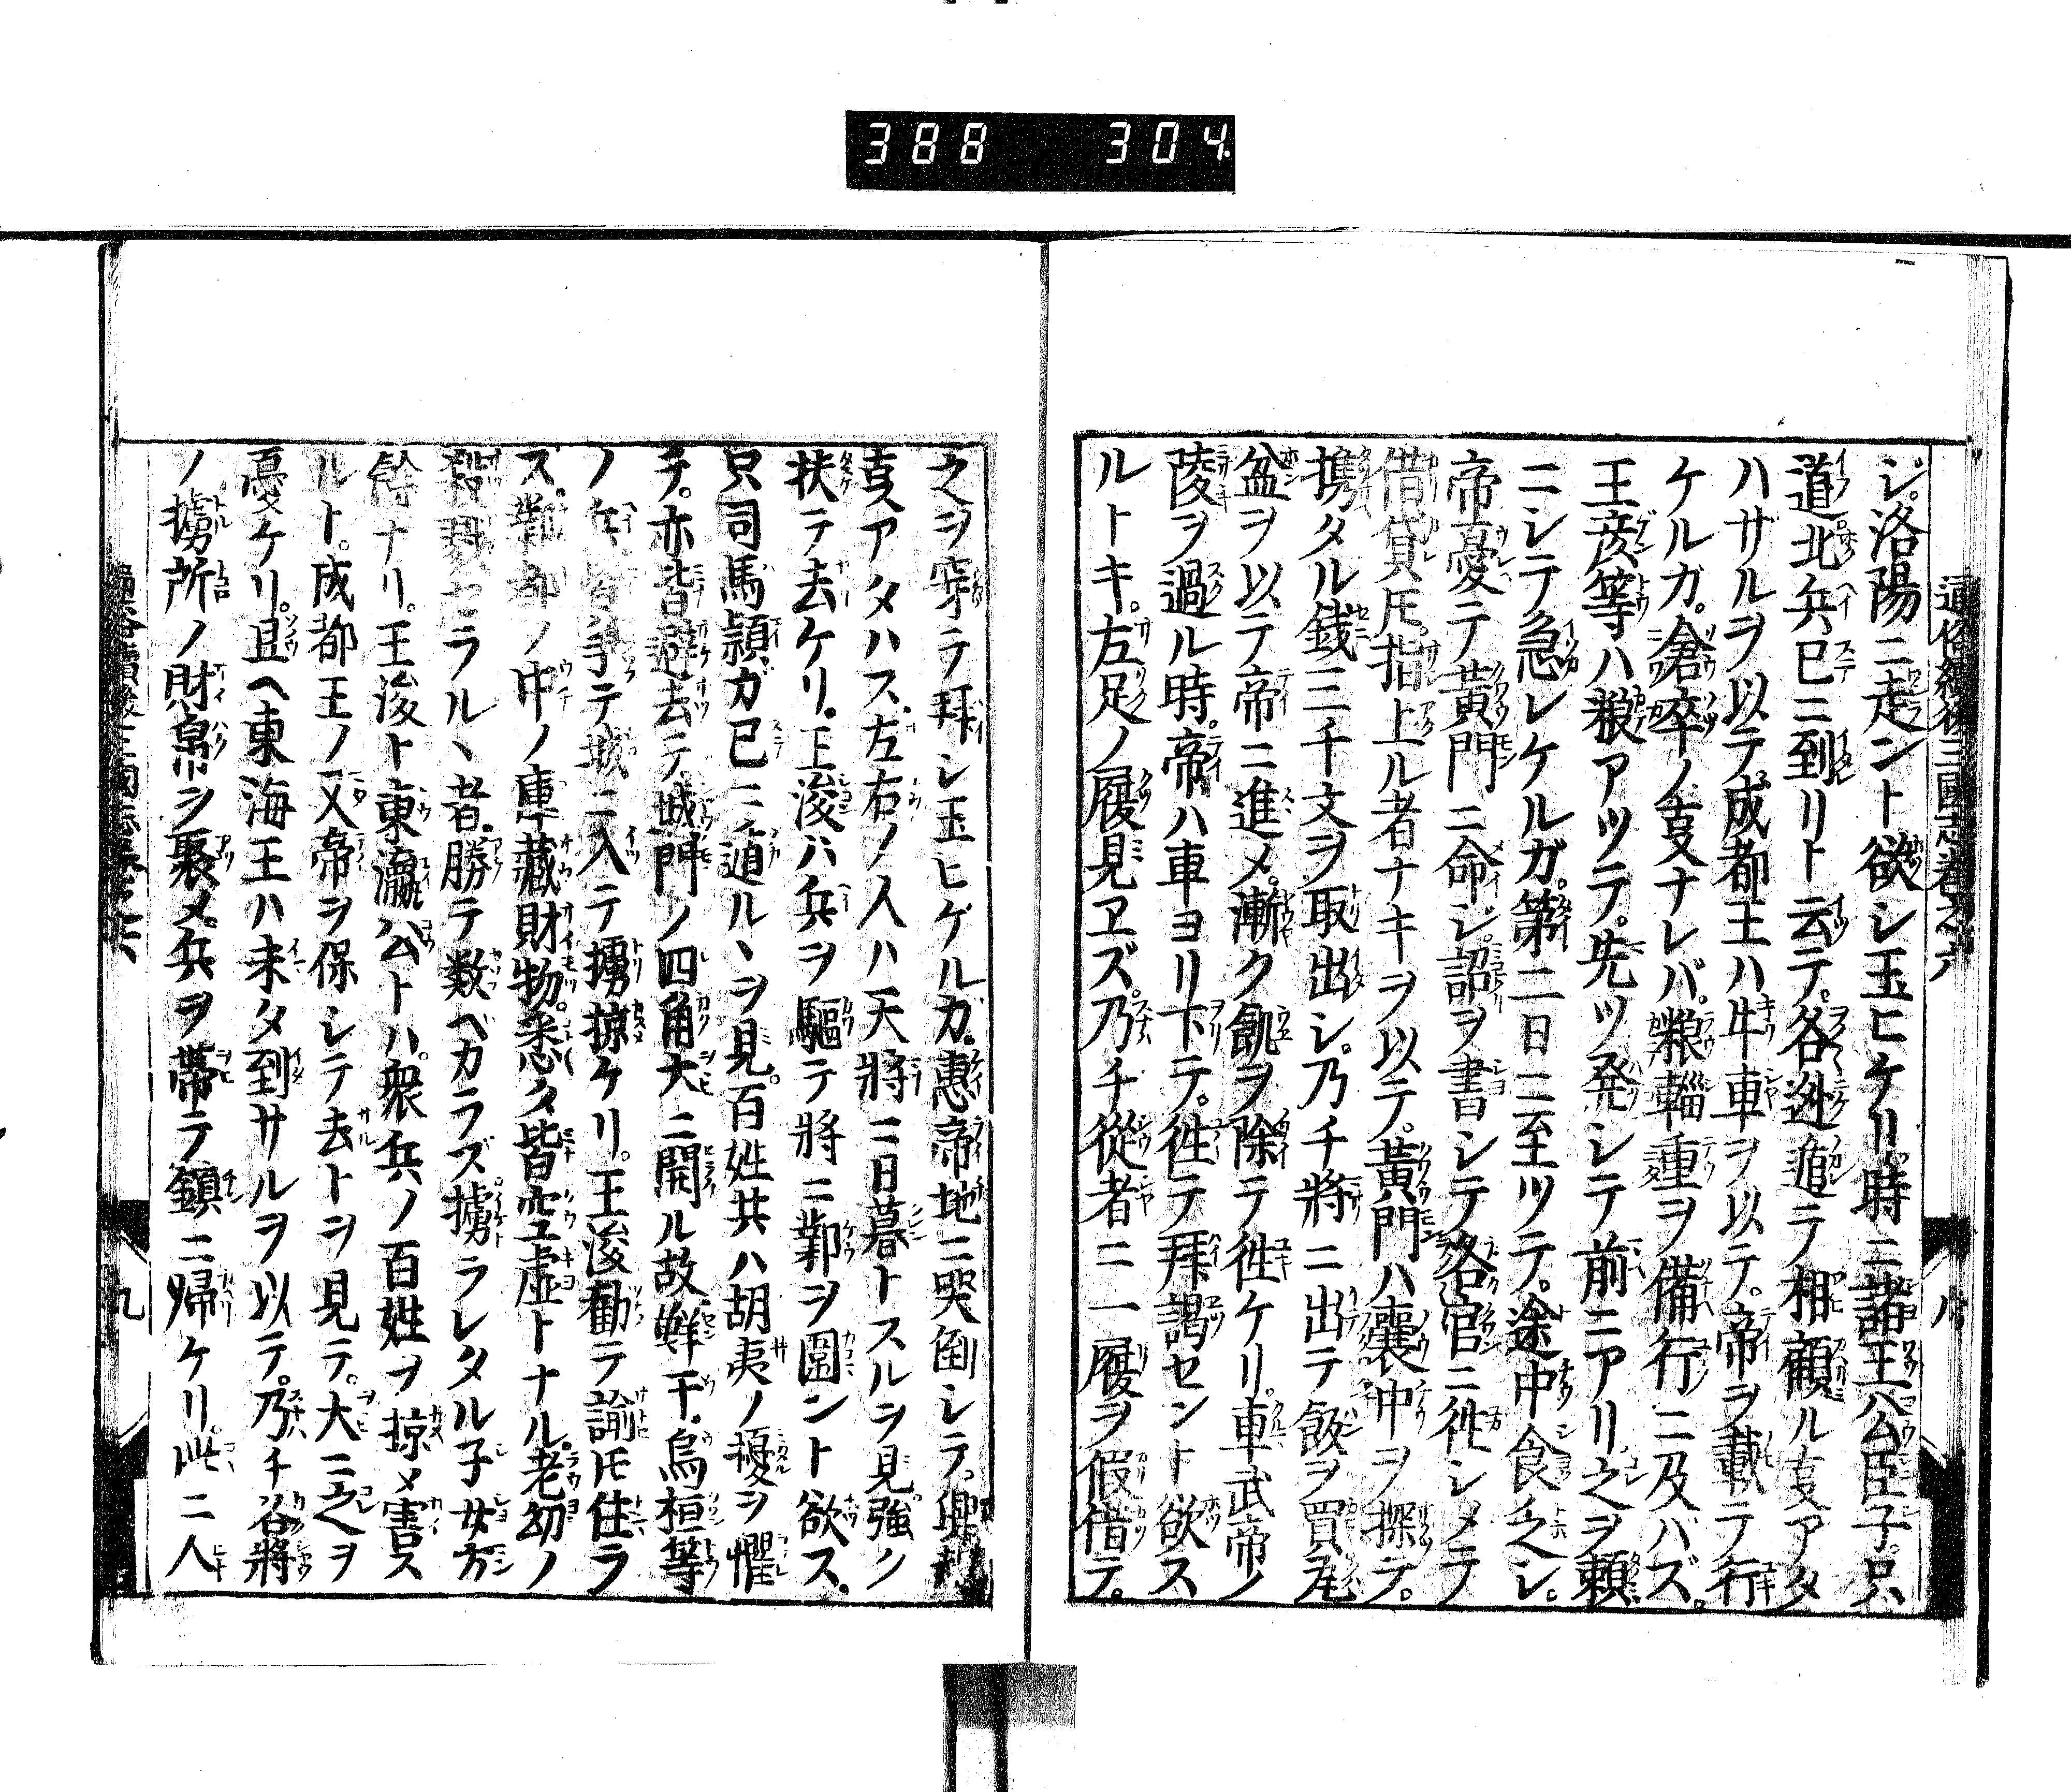 388 304
通俗續後三國志卷之六
八
ジ。洛陽ニ走ント欲シ玉ヒケリ。時ニ諸王公臣子。只ハ
道。北兵已ニ到リト云テ。各逃遁テ相顧ル叓アタ
ハザルヲ以テ成都王ハ牛車ヲ以テ。帝ヲ載テ行
ケルガ。倉卒ノ叓ナレバ。粮輜重ヲ備行ニ及バズ。
王彦等ハ粮アツテ。先ツ発シテ前ニアリ。之ヲ頼
ニシテ急レケルガ。第二日ニ至ツテ。途中食乏シ。
帝憂テ黄門ニ命ジ。詔ヲ書シテ各官ニ徃シメテ
借貸𪜈。指上ル者ナキヲ以テ。黄門ハ嚢中ヲ探テ。
携タル錢三千文ヲ取出シ。乃チ將ニ出テ飯ヲ買
盆ヲ以テ帝ニ進メ。漸ク飢ヲ除テ徃ケリ。車武帝ノ
陵ヲ過ル時。帝ハ車ヨリ下テ。徃テ拜謁セント欲ス
ルトキ。左足ノ履見ヱズ。乃チ從者ニ一履ヲ假借テ。
之ヲ穿テ拜シ玉ヒケルガ。惠帝地ニ哭倒シテ。
叓アタハス。左右ノ人ハ天將ニ日暮トスルヲ見強ク
扶テ去ケリ。王浚ハ兵ヲ驅テ將ニ鄴ヲ圍ント欲ス。
只司馬頴ガ已ニ遁ルヽヲ見。百姓共ハ胡夷ノ擾ヲ懼
テ。亦皆避去テ。城門ノ四角大ニ開ル故。鮮干。烏桓等
ノ兵 手テ城ニ入テ擄掠ケリ。王浚勸テ諭𪜈住ラ
ス。鄴都ノ中ノ庫藏財物。悉ク皆空虚トナル。老幼ノ
殺 セラルヽ者。勝テ数ベカラズ。擄ラレタル子女方
餘ナリ。王浚ト東瀛公トハ。衆兵ノ百姓ヲ掠メ害ス
ルト。成都王ノ又帝ヲ保シテ去トヲ見テ。大ニ之ヲ
憂ケリ。且ヘ東海王ハ未タ到サルヲ以テ。乃チ谷將
ノ擄所ノ財帛シ聚メ。兵ヲ帶テ鎮ニ帰ケリ。此二人
通俗續後三國志卷之六
九